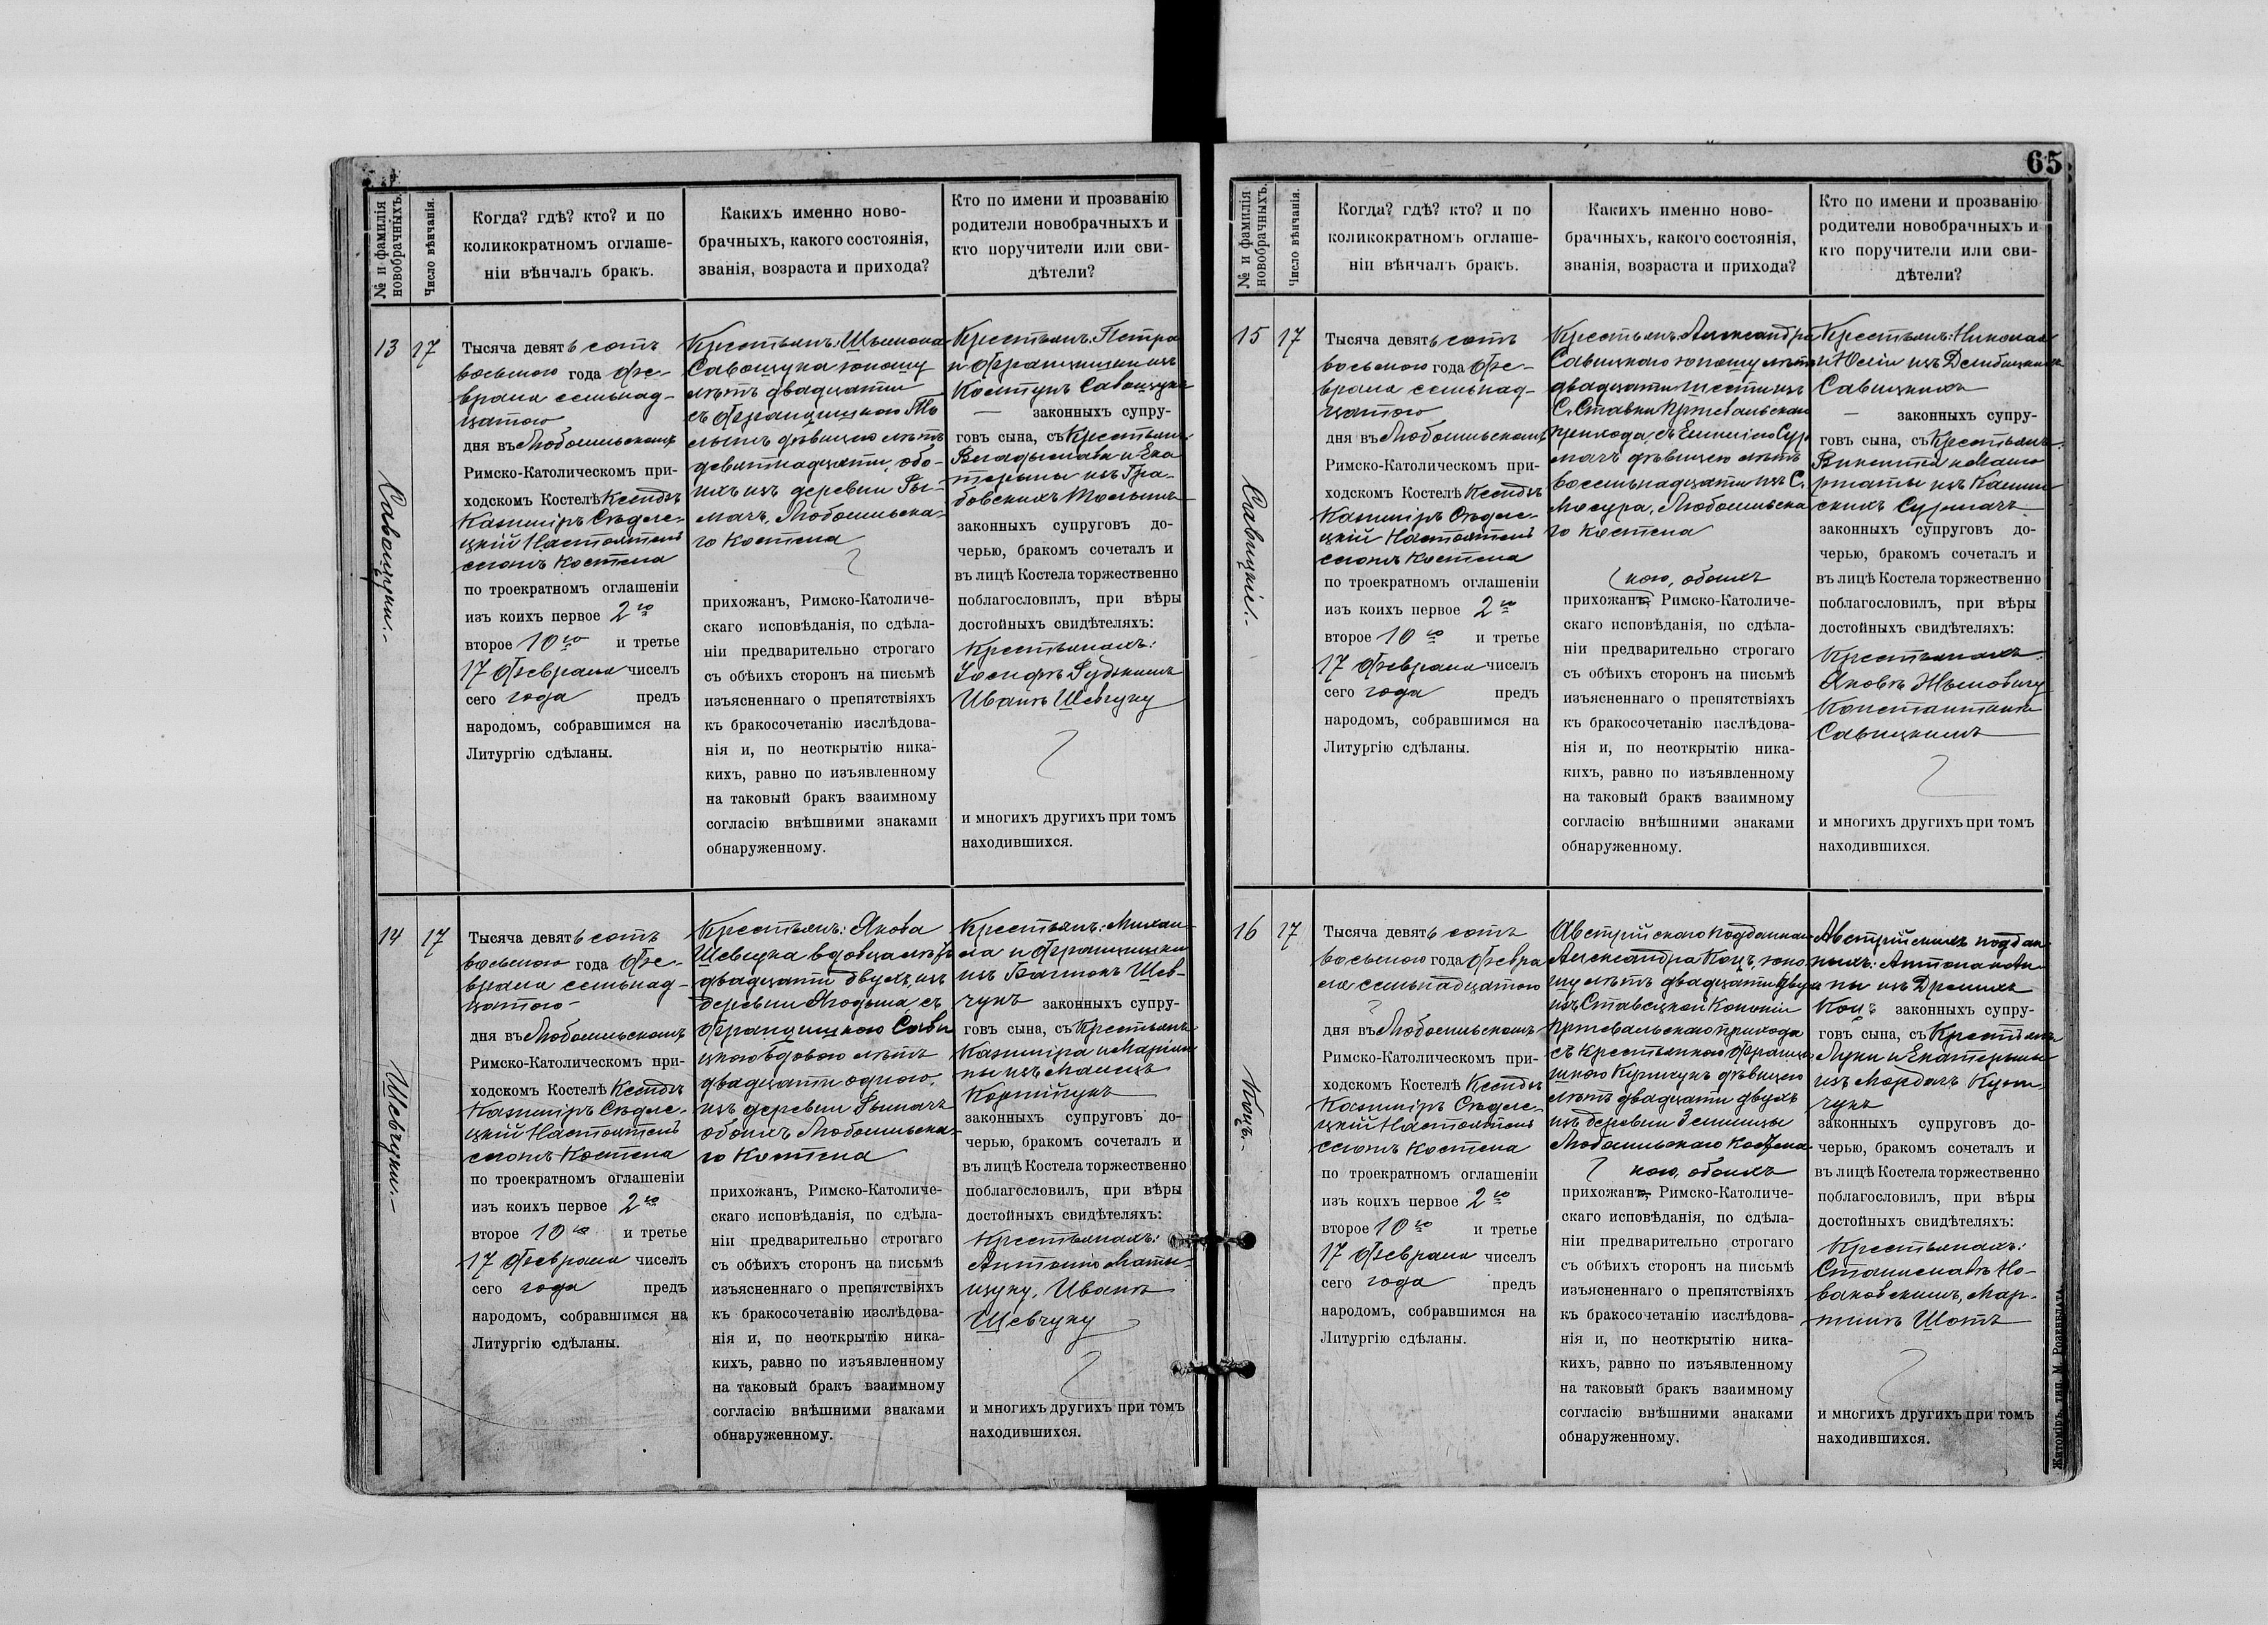 65
№ и фамилія новобрачныхъ.
Число вѣнчанія.
Когда? гдѣ? кто? и по
коликократномъ оглаше-
ніи вѣнчалъ бракъ.
Какихъ именно ново-
брачныхъ, какого состоянія,
званія, возраста и прихода?
Кто по имени и прозванію
родители новобрачныхъ и
кто поручители или сви-
дѣтели?
13
17
Савощуки.-
Тысяча девятьсотъ
восьмого года Фе-
враля семьнад-
цатого
дня въ Любомльскомъ
Римско-Католическомъ при-
ходскомъ Костелѣ Ксендзъ
Казиміръ Сѣдле-
цкій Настоятель
сего Костела
по троекратномъ оглашеніи
изъ коихъ первое 2го
второе 10го и третье
17 Февраля чиселъ
сего года предъ
народомъ, собравшимся на
Литургію сдѣланы.
Крестьянъ: Шымона
Савощука юношу
лѣтъ двадцати
съ Францишкою
дѣвицею лѣтъ
девятнадцати, обо-
ихъ изъ деревни Ры-
мачъ, Любомльска-
го Костела
прихожанъ, Римско-Католиче-
скаго исповѣданія, по сдѣла-
ніи предварительно строгаго
съ обѣихъ сторонъ на письмѣ
изъясненнаго о препятствіяхъ
къ бракосочетанію изслѣдова-
нія и, по неоткрытію ника-
кихъ, равно по изъявленному
на таковый бракъ взаимному
согласію внѣшними знаками
обнаруженному.
Крестьянъ: Петра
и Францишки изъ
Савощукъ
законныхъ супру-
говъ сына, съ Крестьянъ
Владыслава и Ека
терины изъ Гра-
бовскихъ
законныхъ супруговъ до-
черью, бракомъ сочеталъ и
въ лицѣ Костела торжественно
поблагословилъ, при вѣры
достойныхъ свидѣтеляхъ:
Крестьянахъ:
Іосифѣ
Иванѣ Шевчуку
и многихъ другихъ при томъ
находившихся.
14
17
Шевчуки.-
Тысяча девятьсотъ
восьмого года Фе-
враля семьнад-
цатого-
дня въ Любомльскомъ
Римско-Католическомъ при-
ходскомъ Костелѣ Ксендзъ
Казиміръ Сѣдле-
цкій Настоятель
сего Костела
по троекратномъ оглашеніи
изъ коихъ первое 2го
второе 10го и третье
17 Февраля чиселъ
сего года предъ
народомъ, собравшимся на
Литургію сдѣланы.
Крестьянъ: Якова
Шевчука вдовца лѣтъ
двадцати двухъ, изъ
деревни Ягодына съ
Францишкою Сави
цкою вдовою лѣтъ
двадцати одного,
изъ деревни Рымачъ
обоихъ Любомльска-
го Костела
прихожанъ, Римско-Католиче-
скаго исповѣданія, по сдѣла-
ніи предварительно строгаго
съ обѣихъ сторонъ на письмѣ
изъясненнаго о препятствіяхъ
къ бракосочетанію изслѣдова-
нія и, по неоткрытію ника-
кихъ, равно по изъявленному
на таковый бракъ взаимному
согласію внѣшними знаками
обнаруженному.
Крестьянъ: Михаи-
ла и Францишки
изъ Шев-
чукъ законныхъ супру-
говъ сына, съ Крестьянъ
Казиміра и Маріан
ны изъ
законныхъ супруговъ до-
черью, бракомъ сочеталъ и
въ лицѣ Костела торжественно
поблагословилъ, при вѣры
достойныхъ свидѣтеляхъ:
Крестьянахъ:
Антоніѣ Маты-
щуку, Иванѣ
Шевчуку
и многихъ другихъ при томъ
находившихся.
№ и фамилія новобрачныхъ.
Число вѣнчанія.
Когда? гдѣ? кто? и по
коликократномъ оглаше-
ніи вѣнчалъ бракъ.
Какихъ именно ново-
брачныхъ, какого состоянія,
званія, возраста и прихода?
Кто по имени и прозванію
родители новобрачныхъ и
кто поручители или сви-
дѣтели?
15
17
Савицкіе.-
Тысяча девятьсотъ
восьмого года Фе-
враля семьнад-
цатого
дня въ Любомльскомъ
Римско-Католическомъ при-
ходскомъ Костелѣ Ксендзъ
Казиміръ Сѣдле-
цкій Настоятель
сего Костела
по троекратномъ оглашеніи
изъ коихъ первое 2го
второе 10го и третье
17 Февраля чиселъ
сего года предъ
народомъ, собравшимся на
Литургію сдѣланы.
Крестьянъ: Александра
Савицкаго юношу лѣтъ
двадцати шести изъ
С. Ставки
прихода, съ Емиліею Сур
мачъ дѣвицею лѣтъ
восемьнадцати изъ С.
Мосура, Любомльска
го Костела
кою, обоихъ
прихожанъ, Римско-Католиче-
скаго исповѣданія, по сдѣла-
ніи предварительно строгаго
съ обѣихъ сторонъ на письмѣ
изъясненнаго о препятствіяхъ
къ бракосочетанію изслѣдова-
нія и, по неоткрытію ника-
кихъ, равно по изъявленному
на таковый бракъ взаимному
согласію внѣшними знаками
обнаруженному.
Крестьянъ: Николая
и Юліи изъ Дембицкихъ
Савицкихъ
законныхъ супру-
говъ сына, съ Крестьянъ:
Викентія и Мал
гржаты изъ
Сурмачъ
законныхъ супруговъ до-
черью, бракомъ сочеталъ и
въ лицѣ Костела торжественно
поблагословилъ, при вѣры
достойныхъ свидѣтеляхъ:
Крестьянахъ:
Яковѣ
Константинѣ
Савицкимъ
и многихъ другихъ при томъ
находившихся.
16
17
Коцъ.-
Тысяча девятьсотъ
восьмого года Февра
ля семьнадцатого
дня въ Любомльскомъ
Римско-Католическомъ при-
ходскомъ Костелѣ Ксендзъ
Казиміръ Сѣдле-
цкій Настоятель
сего Костела
по троекратномъ оглашеніи
изъ коихъ первое 2го
второе 10го и третье
17 Февраля чиселъ
сего года предъ
народомъ, собравшимся на
Литургію сдѣланы.
Австрійскаго подданнаго
Александра Коцъ, юно
шу лѣтъ двадцати двухъ
изъ Ставецкой Колоніи
прихода
съ крестьянкою Франци
шкою дѣвицею
лѣтъ двадцати двухъ
изъ деревни Землицы
Любомльскаго Костела
кою, обоихъ
прихожанъ, Римско-Католиче-
скаго исповѣданія, по сдѣла-
ніи предварительно строгаго
съ обѣихъ сторонъ на письмѣ
изъясненнаго о препятствіяхъ
къ бракосочетанію изслѣдова-
нія и, по неоткрытію ника-
кихъ, равно по изъявленному
на таковый бракъ взаимному
согласію внѣшними знаками
обнаруженному.
Австрійскихъ поддан
ныхъ: Антона и Ан
ны изъ
Коцъ законныхъ супру-
говъ сына, съ Крестьянъ
Луки и Екатерины
изъ
законныхъ супруговъ до-
черью, бракомъ сочеталъ и
въ лицѣ Костела торжественно
поблагословилъ, при вѣры
достойныхъ свидѣтеляхъ:
Крестьянахъ:
Станиславѣ Но-
ваковскимъ, Мар-
тинѣ Шотъ
и многихъ другихъ при томъ
находившихся.
Житоміръ, тип. М. Розенблата.